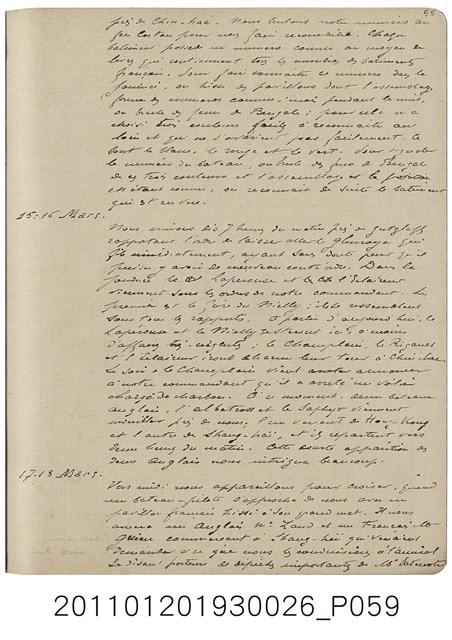 55
près de Chin-haé. Nous hissons notre numéro au
feu Coston pour nous faire reconnaître. Chaque
bâtiment possède un numéro connu au moyen de
livres qui contiennent tous les numéros des bâtiments
français. Pour faire connaître ce numéro dans la
journée, on hisse des pavillons dont l'assemblage
forme des numéros connus, mais pendant la nuit,
on brûle des feux de Bengale; pour cela on a
choisi trois couleurs faciles à reconnaître au
loin et qui ne s'altèrent pas facilement. Ce
sont le blanc, le rouge et le vert. Pour signaler
le numéro du bateau, on brûle des feux de Bengale
de ces trois couleurs et l'assemblage et la position
étant connus, on reconnaît de suite le bâtiment
qui est en vue.
15-16 Mars.
Nous arrivons dès 7 heures du matin près de Gutzlaff
rapportant l'ordre de laisser aller le Glenroy qui
file immédiatement, ayant sans doute peur qu'il
puisse y avoir de nouveau contr'ordre. Dans la
journée le Lapérouse et l'Eclaireur
viennent sous les ordres de notre commandant. Le
premier est le frère du Nielly; ils se ressemblent
sous tous les rapports. A partir d'aujourd'hui, le
Lapérouse et le Nielly resteront ici, à moins
d'affaires urgentes; le Champlain, le Rigault
et l'Eclaireur iront chacun leur tour à Chin-haé.
Le soir le Champlain vient annoncer
à notre commandant qu'il a arrêté un voilier
chargé de charbon. A ce moment, deux bateaux
anglais, l'Albatross et le Saphyr viennent
mouiller près de nous, l'un venant de Hong-Kong
et l'autre de Shang-haï, et ils repartent vers
deux heures du matin. Cette courte apparition des
deux Anglais nous intrigua beaucoup.
17-18 Mars.
Vers midi nous appareillons pour croiser, quand
un bateau-pilote s'approche de nous avec un
pavillon français hissé à son grand mât. Il nous
amène un Anglais Mr. et un Français Mr.
commerçant à Shang-haï qui venaient
demander à ce que nous les conduisions à l'amiral
se disant porteurs de dépêches importantes de Mr
201101201930026_P059